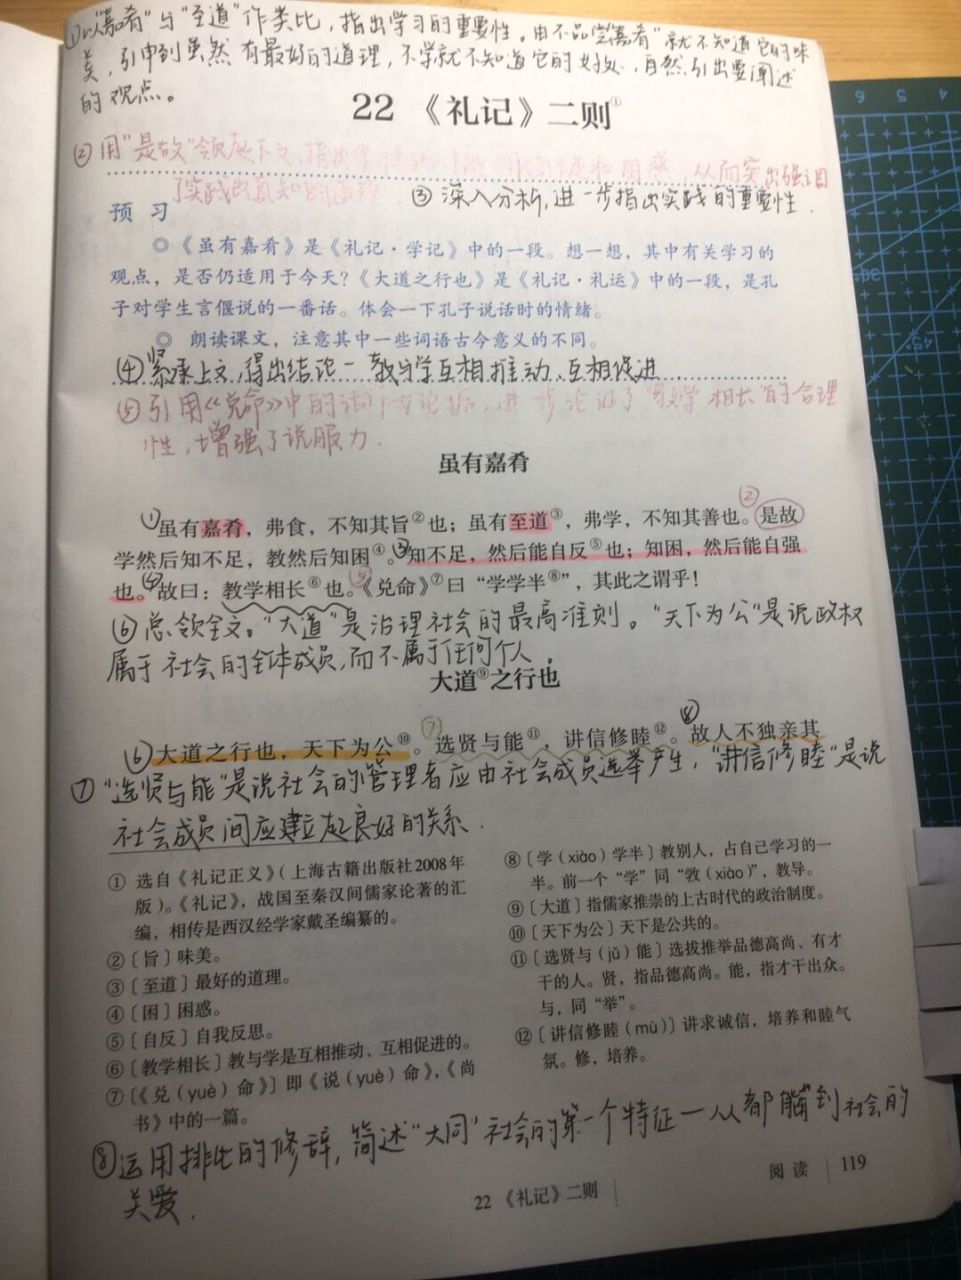 ①以“嘉肴”与“至道”作类比，指出学习的重要性。由不品尝“嘉肴”就不知道它的味
美，引申到虽然有最好的道理，不学就不知道它的好处，自然引出要阐述
的观点。
22 《礼记》二则①
②用“是故”领起下文，指出学习 困惑，从而突出强调
了实践出真知的道理
③深入分析，进一步指出实践的重要性．
预 习
◎《虽有嘉肴》是《礼记·学记》中的一段。想一想，其中有关学习的
观点，是否仍适用于今天？《大道之行也》是《礼记·礼运》中的一段，是孔
子对学生言偃说的一番话。体会一下孔子说话时的情绪。
◎ 朗读课文，注意其中一些词语古今意义的不同。
④紧承上文，得出结论一教与学互相推动、互相促进
⑤引用《兑命》中的话作为论据，进一步论证了“教学相长”的合理
性，增强了说服力．
虽有嘉肴
①虽有嘉肴，弗食，不知其旨②也；虽有至道③，弗学，不知其善也。②是故
学然后知不足，教然后知困④。③知不足，然后能自反⑤也；知困，然后能自强
也。④故曰：教学相长⑥也。⑤《兑命》⑦曰“学学半⑧”，其此之谓乎！
⑥总领全文。“大道”是治理社会的最高准则。“天下为公”是说政权
属于社会的全体成员，而不属于任何个人．
大道⑨之行也
⑥大道之行也，天下为公⑩。⑦选贤与能⑪，讲信修睦⑫。⑧故人不独亲其
⑦“选贤与能”是说社会的管理者应由社会成员选举产生，“讲信修睦”是说
社会成员间应建立起良好的关系．
① 选自《礼记正义》（上海古籍出版社2008年
版）。《礼记》，战国至秦汉间儒家论著的汇
编，相传是西汉经学家戴圣编纂的。
②〔旨〕味美。
③〔至道〕最好的道理。
④〔困〕困惑。
⑤〔自反〕自我反思。
⑥〔教学相长〕教与学是互相推动、互相促进的。
⑦〔《兑（yuè）命》〕即《说（yuè）命》，《尚
书》中的一篇。
⑧〔学（xiào）学半〕教别人，占自己学习的一
半。前一个“学”同“敩（xiào）”，教导。
⑨〔大道〕指儒家推崇的上古时代的政治制度。
⑩〔天下为公〕天下是公共的。
⑪〔选贤与（jǔ）能〕选拔推举品德高尚、有才
干的人。贤，指品德高尚。能，指才干出众。
与，同“举”。
⑫〔讲信修睦（mù）〕讲求诚信，培养和睦气
氛。修，培养。
⑧运用排比的修辞，简述“大同”社会的第一个特征一人人都能得到社会的
关爱．
22 《礼记》二则
阅 读 119